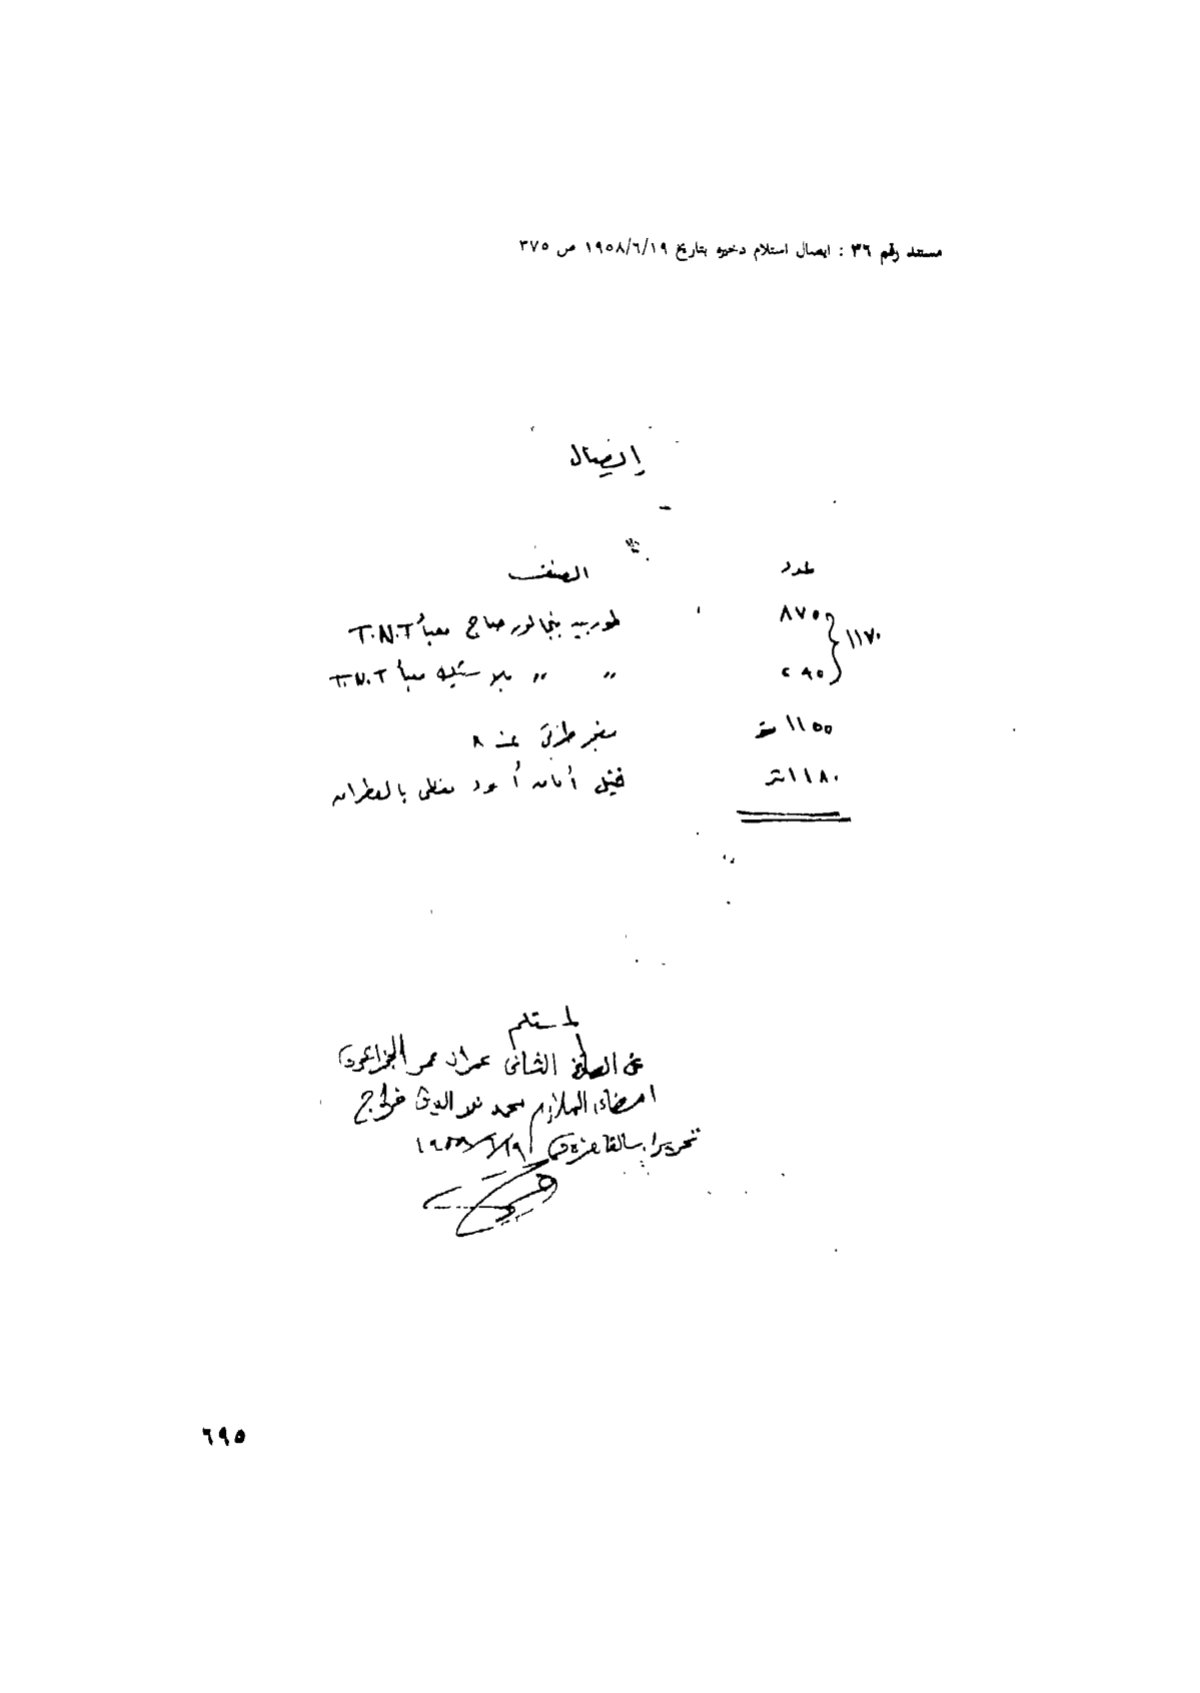 مستند رقم ٣٦ : ايصال استلام ذخيره بتاريخ ١٩٥٨/٦/١٩ ص ٣٧٥
إيصال
عدد الصنف
٨٧٥ طوربيد بنجالور صاج معبأ T.N.T
١١٧٠
٢٩٥ " " بلاستيك معبأ T.N.T
١١٥٥ مفجر طرقى نمرة ٨
١١٨٠ متر فتيل أمان أسود مغطى بالقطران
المستلم
عن الصاغ الثانى عمران عمر الجزائرى
امضاء الملازم محمد نور الدين فراج
تحريرا بالقاهرة فى ١٩٥٨/٦/١٩
٦٩٥